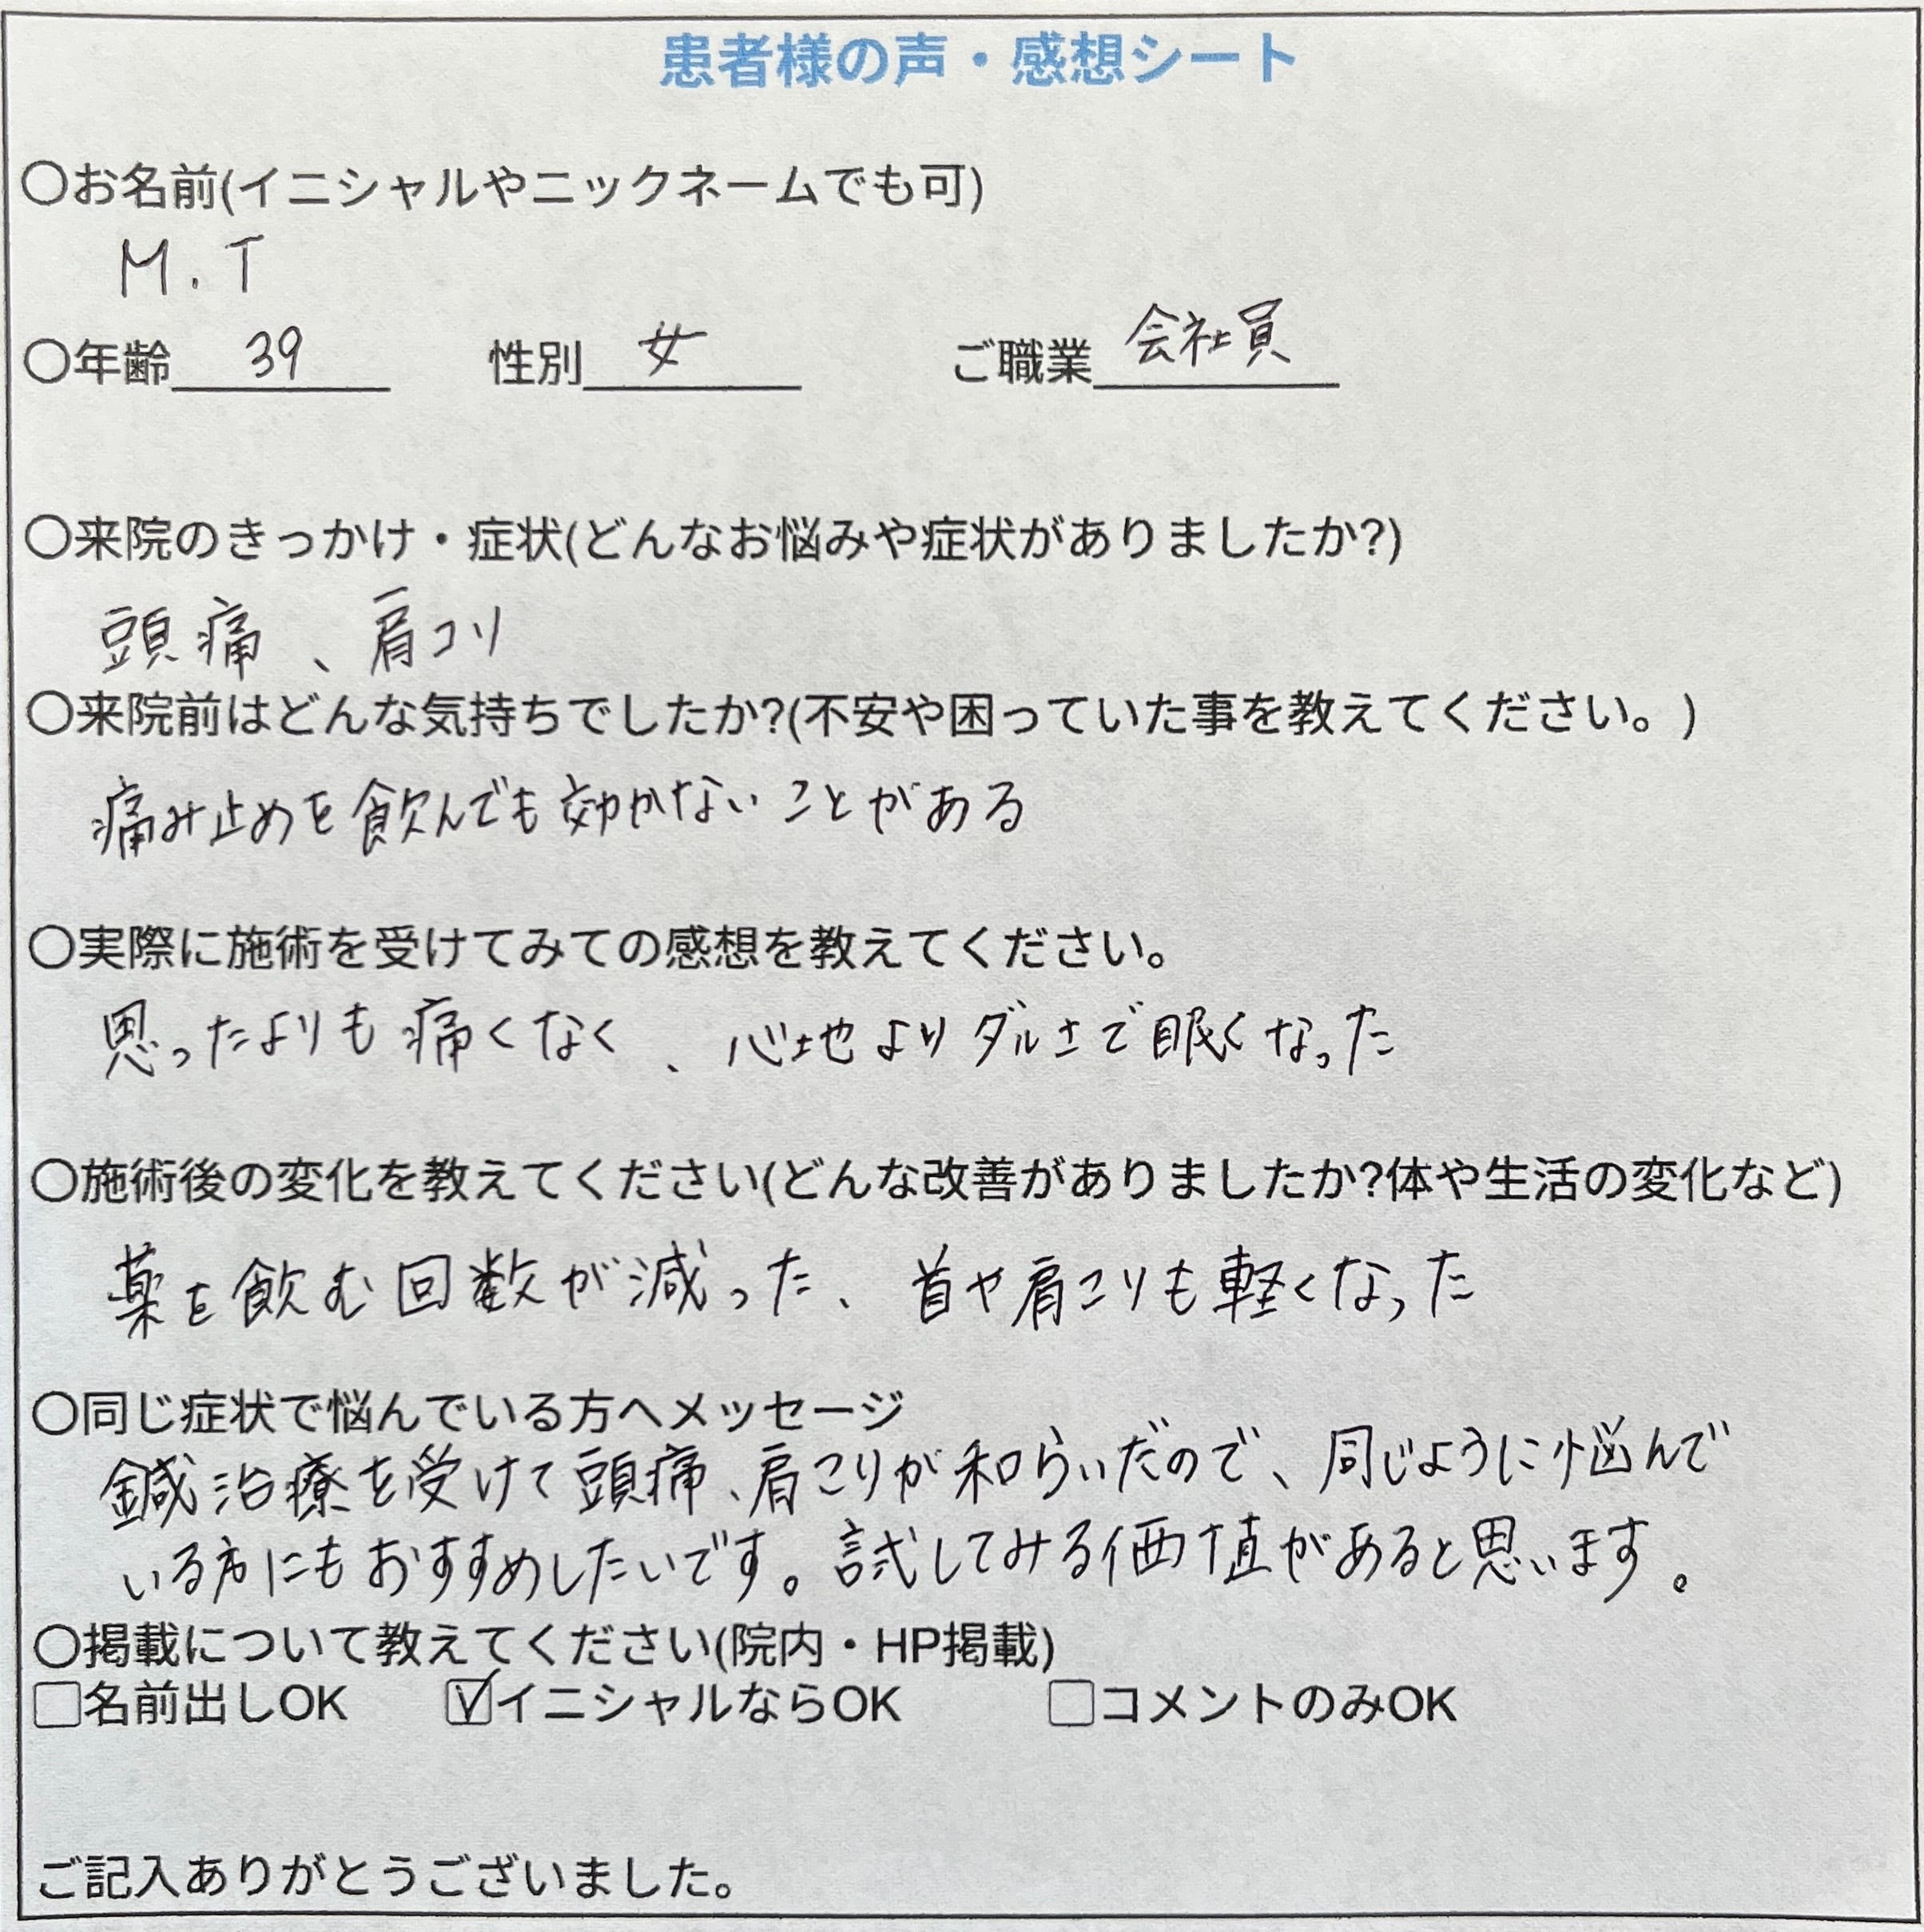 患者様の声・感想シート
〇お名前(イニシャルやニックネームでも可)
M.T
〇年齢 39 性別 女 ご職業 会社員
〇来院のきっかけ・症状(どんなお悩みや症状がありましたか?)
頭痛、肩コリ
〇来院前はどんな気持ちでしたか?(不安や困っていた事を教えてください。)
痛み止めを飲んでも効かないことがある
〇実際に施術を受けてみての感想を教えてください。
思ったよりも痛くなく、心地よりダルさで眠くなった
〇施術後の変化を教えてください(どんな改善がありましたか?体や生活の変化など)
薬を飲む回数が減った、首や肩こりも軽くなった
〇同じ症状で悩んでいる方へメッセージ
鍼治療を受けて頭痛、肩こりが和らいだので、同じように悩んで
いる方にもおすすめしたいです。試してみる価値があると思います。
〇掲載について教えてください(院内・HP掲載)
☐名前出しOK ☑イニシャルならOK ☐コメントのみOK
ご記入ありがとうございました。